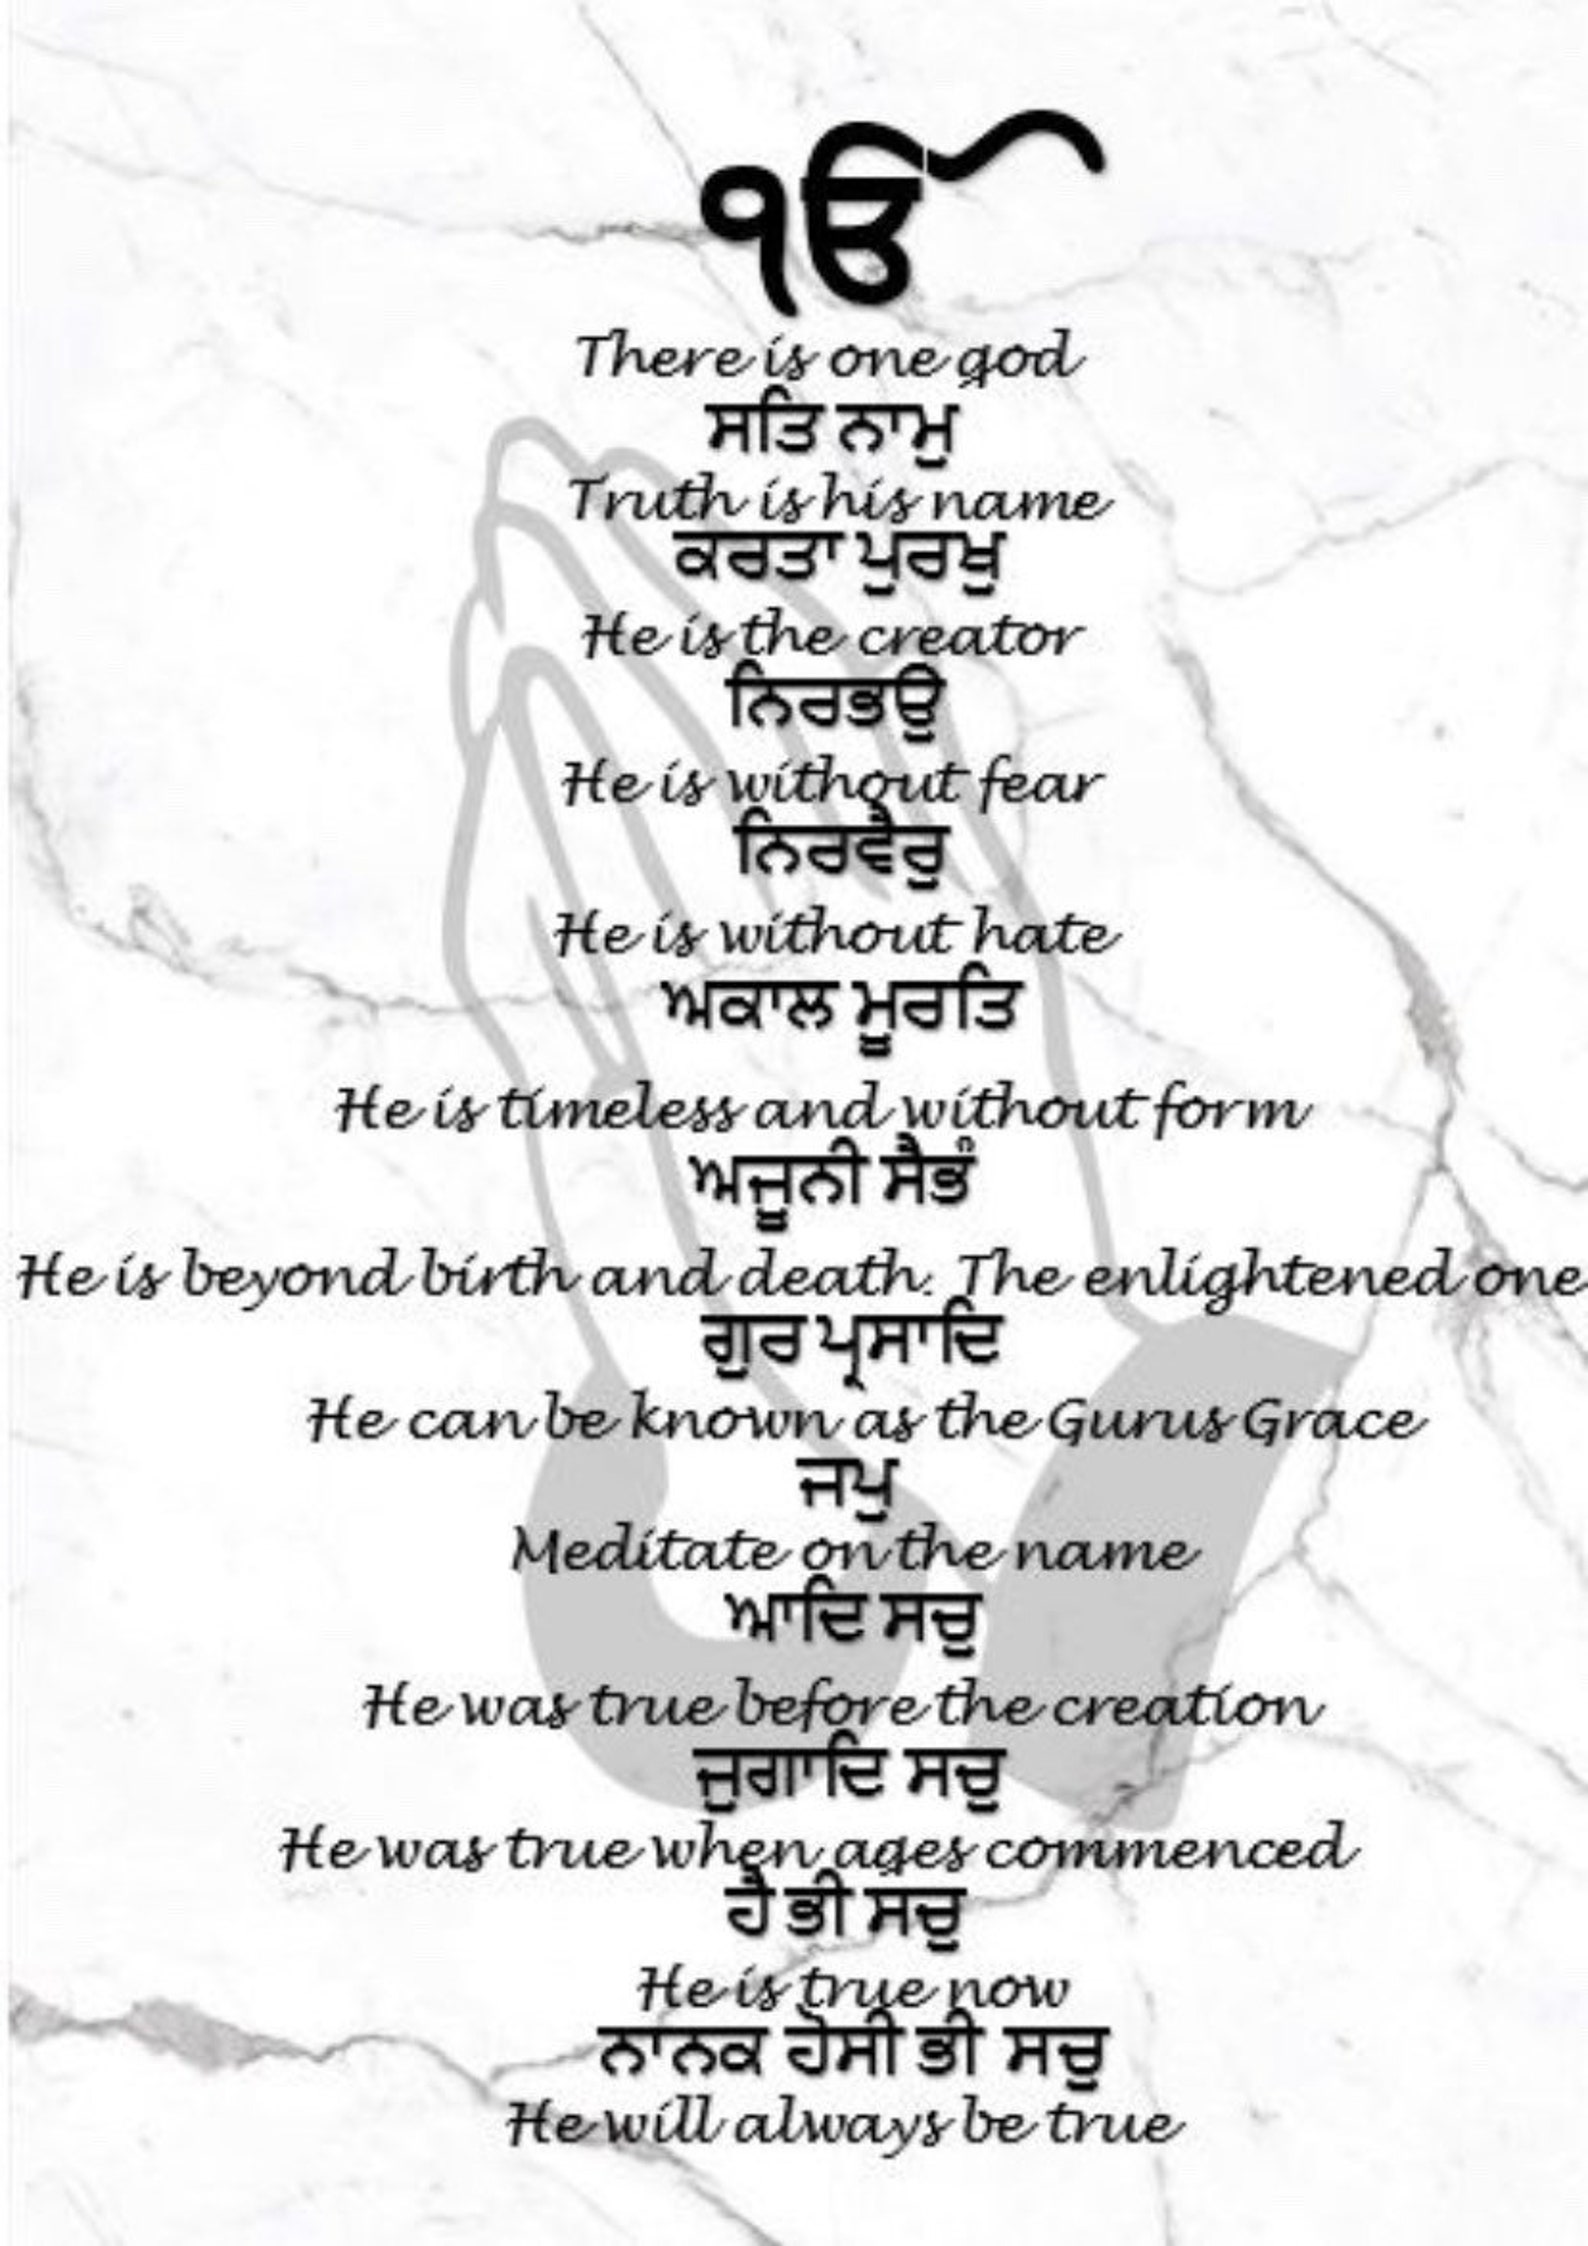 ੴ
There is one god
ਸਤਿ ਨਾਮੁ
Truth is his name
ਕਰਤਾ ਪੁਰਖੁ
He is the creator
ਨਿਰਭਉ
He is without fear
ਨਿਰਵੈਰੁ
He is without hate
ਅਕਾਲ ਮੂਰਤਿ
He is timeless and without form
ਅਜੂਨੀ ਸੈਭੰ
He is beyond birth and death. The enlightened one
ਗੁਰ ਪ੍ਰਸਾਦਿ
He can be known as the Gurus Grace
ਜਪੁ
Meditate on the name
ਆਦਿ ਸਚੁ
He was true before the creation
ਜੁਗਾਦਿ ਸਚੁ
He was true when ages commenced
ਹੈ ਭੀ ਸਚੁ
He is true now
ਨਾਨਕ ਹੋਸੀ ਭੀ ਸਚੁ
He will always be true